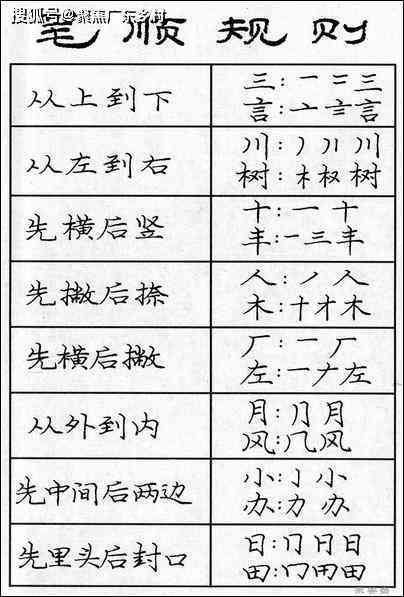 搜狐号@聚焦广东乡村
笔顺规则
从上到下
三:一二三
言:亠言言
从左到右
川:丿川川
树:木权树
先横后竖
十:一十
丰:一三丰
先撇后捺
人:丿人
木:十才木
先横后撇
厂:一厂
左:一𠂇左
从外到内
月:⺆月
风:几风
先中间后两边
小:亅小
办:力办
先里头后封口
日:冂日日
田:冂田田